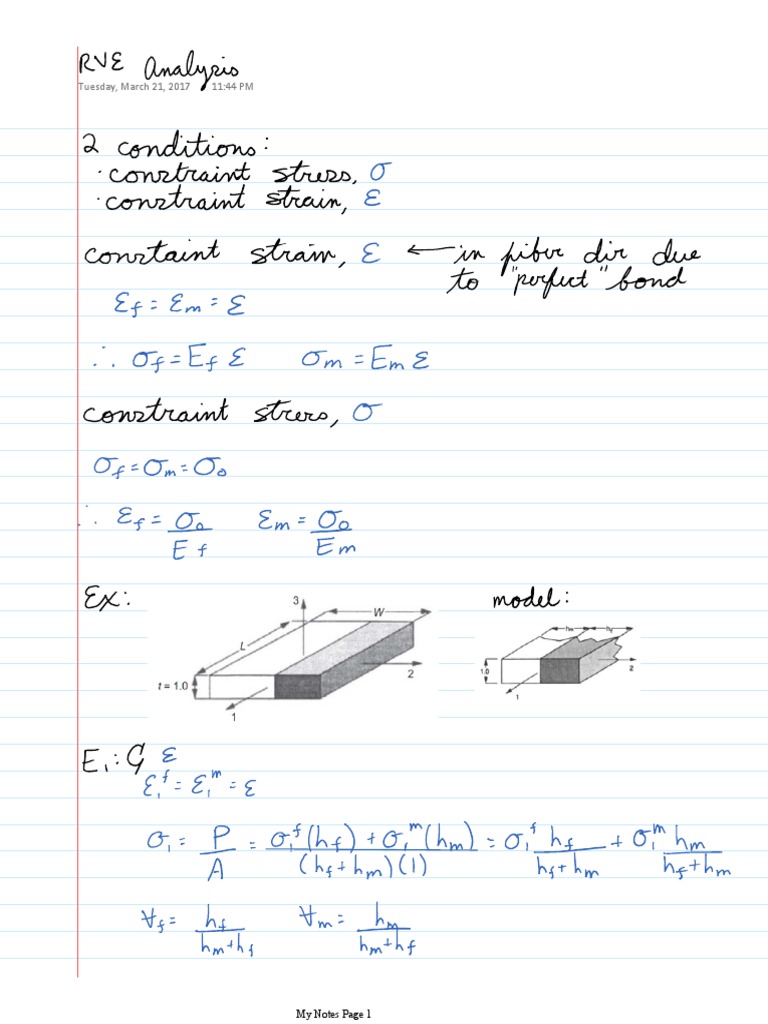 RVE Analysis
Tuesday, March 21, 2017 11:44 PM
2 conditions:
· constraint stress, σ
· constraint strain, ε
constaint strain, ε ← in fiber dir due
to "perfect" bond
ε_f = ε_m = ε
∴ σ_f = E_f ε σ_m = E_m ε
constraint stress, σ
σ_f = σ_m = σ_0
∴ ε_f = σ_0 / E_f ε_m = σ_0 / E_m
Ex: model:
3 W L 2 t = 1.0 1
h_m h_f 1.0 2 1
E_1: ε
ε_1^f = ε_1^m = ε
σ_1 = P/A = (σ_1^f (h_f) + σ_1^m (h_m)) / ((h_f + h_m)(1)) = σ_1^f h_f / (h_f + h_m) + σ_1^m h_m / (h_f + h_m)
∀_f = h_f / (h_m + h_f) ∀_m = h_m / (h_m + h_f)
My Notes Page 1